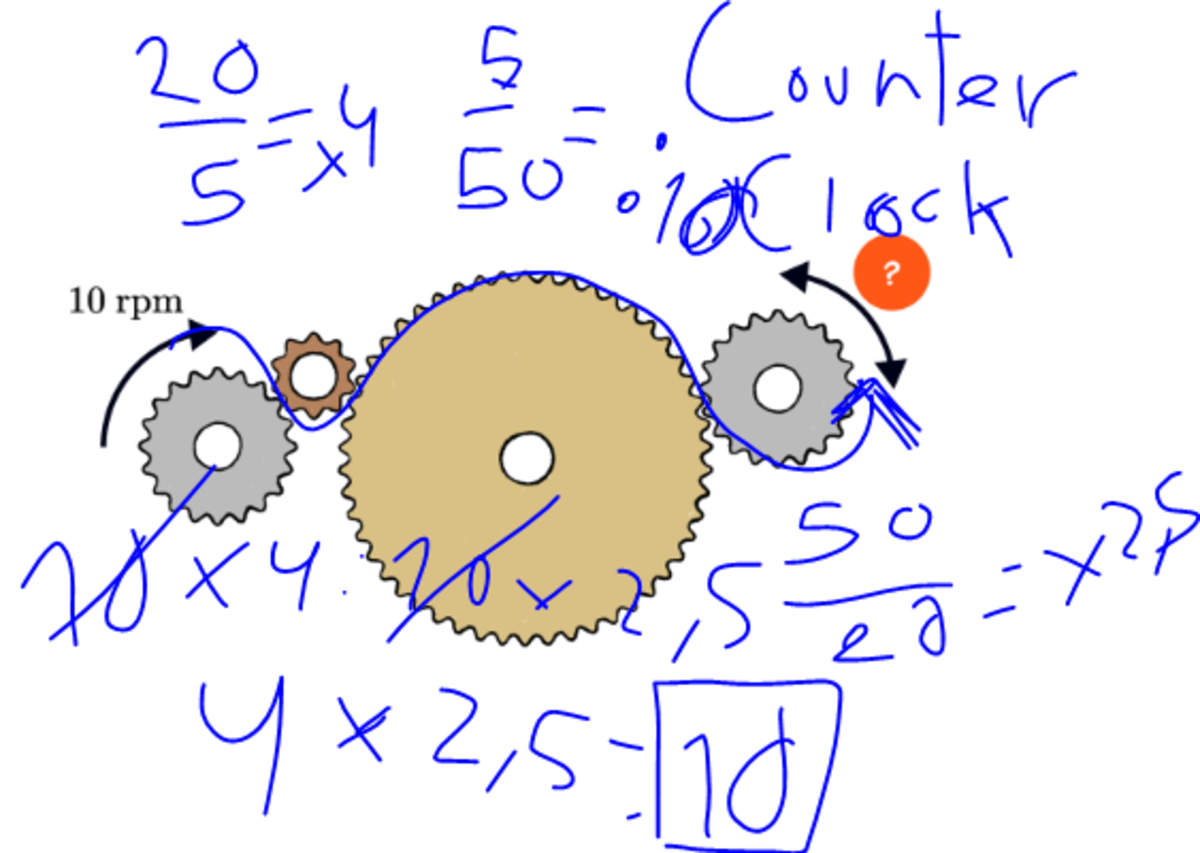 20/5 = x4 5/50 = : 10 Counter
Clock
?
10 rpm
10 x 4 : 10 x 2,5 50/20 = x2,5
4 x 2,5 = 10